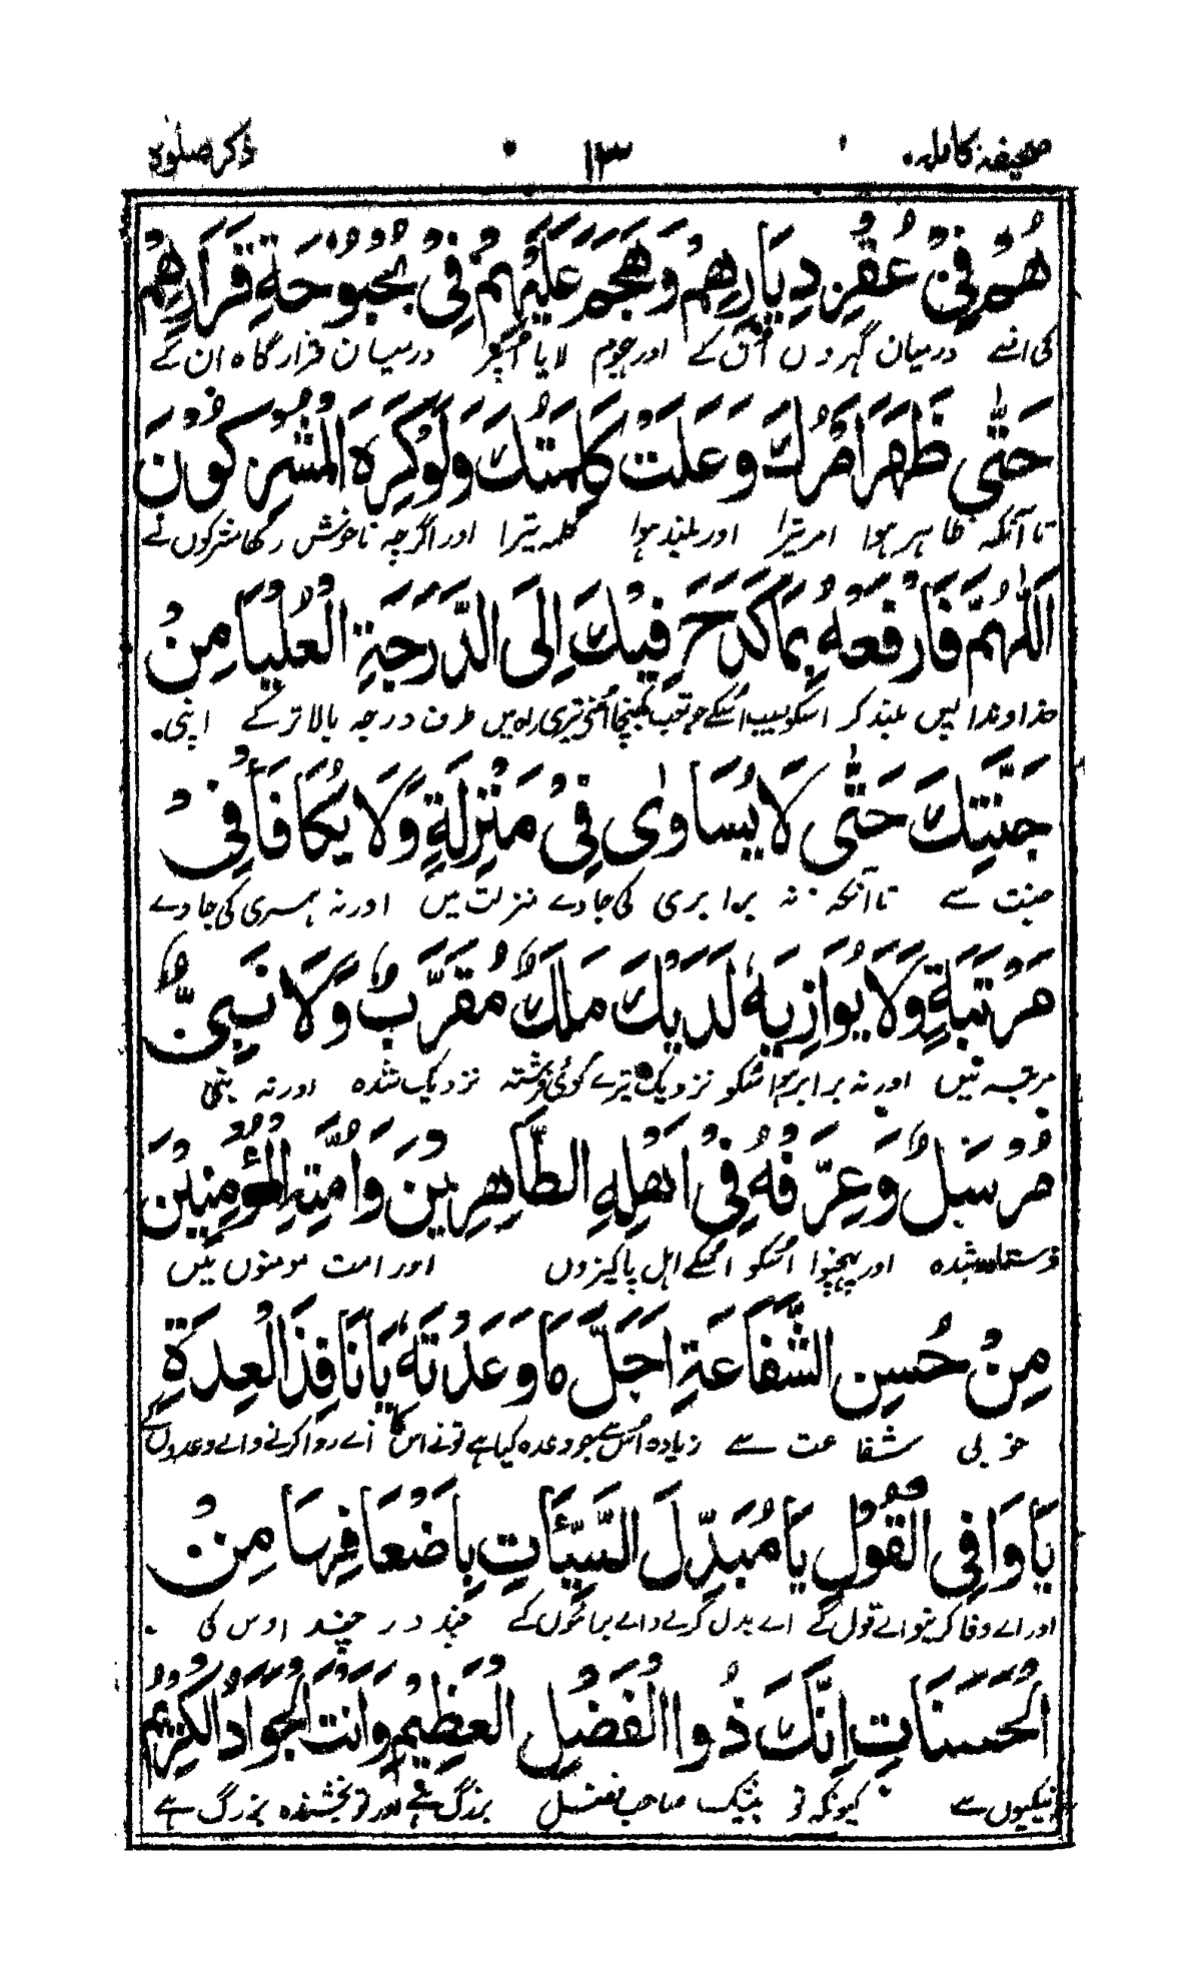 صحیفۂ کاملہ ۱۳ ذکر صلوٰۃ
هُمْ فِيْ عُقْرِ دِيَارِهِمْ وَهَجَمَ عَلَيْهِمْ فِيْ بُحْبُوْحَةِ قَرَارِهِمْ
کی انسے درمیان گہروں اُن کے اور ہجوم لایا اُنپر درمیان قرارگاہ ان کے
حَتّٰى ظَهَرَ اَمْرُكَ وَعَلَتْ كَلِمَتُكَ وَلَوْ كَرِهَ الْمُشْرِكُوْنَ
تا آنکہ ظاہر ہوا امر تیرا اور بلند ہوا کلمہ تیرا اور اگرچہ ناخوش رکھا مشرکوں نے
اَللّٰهُمَّ فَارْفَعْهُ بِمَا كَدَحَ فِيْكَ اِلَى الدَّرَجَةِ الْعُلْيَا مِنْ
خداوندا پس بلند کر اسکو بسبب اسکے جو تعب کھینچا اُسنے تیری راہ میں طرف درجہ بالاتر کے اپنی
جَنَّتِكَ حَتّٰى لَا يُسَاوٰى فِيْ مَنْزِلَةٍ وَلَا يُكَافَأَ فِيْ
جنت سے تا آنکہ نہ برابری کی جاوے منزلت میں اور نہ ہمسری کی جاوے
مَرْتَبَةٍ وَلَا يُوَازِيَهٗ لَدَيْكَ مَلَكٌ مُقَرَّبٌ وَلَا نَبِيٌّ
مرتبہ میں اور نہ برابر ہو اُسکو نزدیک تیرے کوئی فرشتہ نزدیک شدہ اور نہ نبی
مُرْسَلٌ وَعَرِّفْهُ فِيْ اَهْلِهِ الطَّاهِرِيْنَ وَاُمَّتِهِ الْمُؤْمِنِيْنَ
فرستادہ شدہ اور پہچنوا اُسکو اُسکے اہل پاکیزوں اور امت مومنوں میں
مِنْ حُسْنِ الشَّفَاعَةِ اَجَلَّ مَا وَعَدْتَهٗ يَا نَافِذَ الْعِدَةِ
خوبی شفاعت سے زیادہ اُس سے جو وعدہ کیا ہے تونے اس کا اے روا کرنے والے وعدوں کے
يَا وَافِيَ الْقَوْلِ يَا مُبَدِّلَ السَّيِّئَاتِ بِاَضْعَافِهَا مِنْ
اور اے وفا کرنیوالے قول کے اے بدل کرنے والے برائیوں کے چند در چند اوس کی
الْحَسَنَاتِ اِنَّكَ ذُوا الْفَضْلِ الْعَظِيْمِ وَاَنْتَ الْجَوَادُ الْكَرِيْمُ
نیکیوں سے کیونکہ تو بیشک صاحب فضل بزرگ ہے اور تو بخشندہ بزرگ ہے